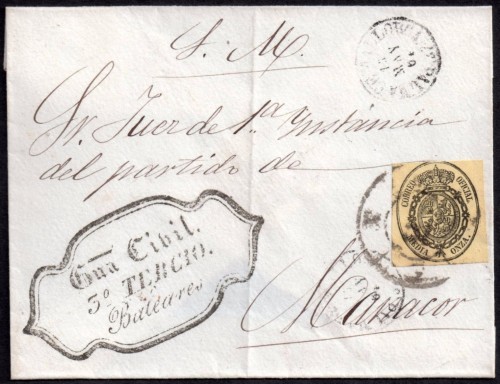 S. M.
PALMA MALLORCA
MAY
Sr. Juez de 1ª Instancia
del partido de
CORREO OFICIAL
MEDIA ONZA.
Gua Civil.
3º TERCIO.
Baleares
Manacor